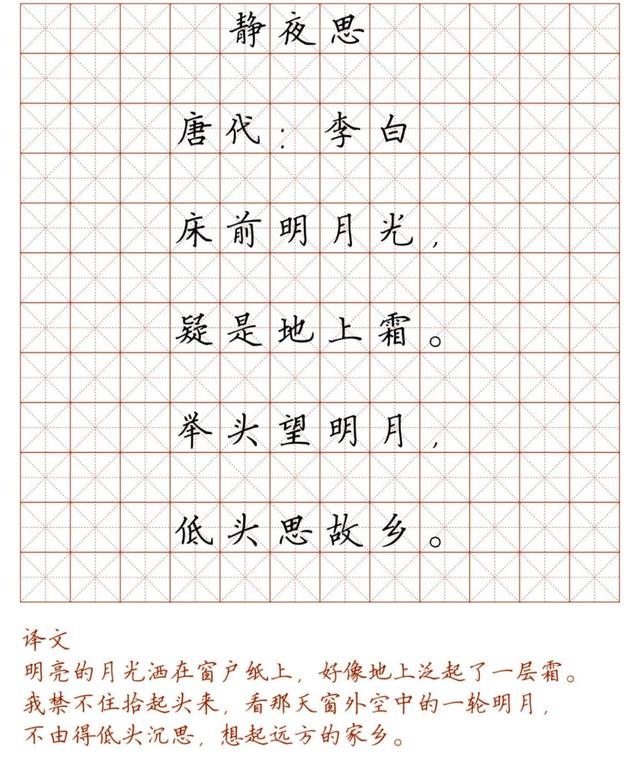 静夜思
唐代：李白
床前明月光，
疑是地上霜。
举头望明月，
低头思故乡。
译文
明亮的月光洒在窗户纸上，好像地上泛起了一层霜。
我禁不住拾起头来，看那天窗外空中的一轮明月，
不由得低头沉思，想起远方的家乡。